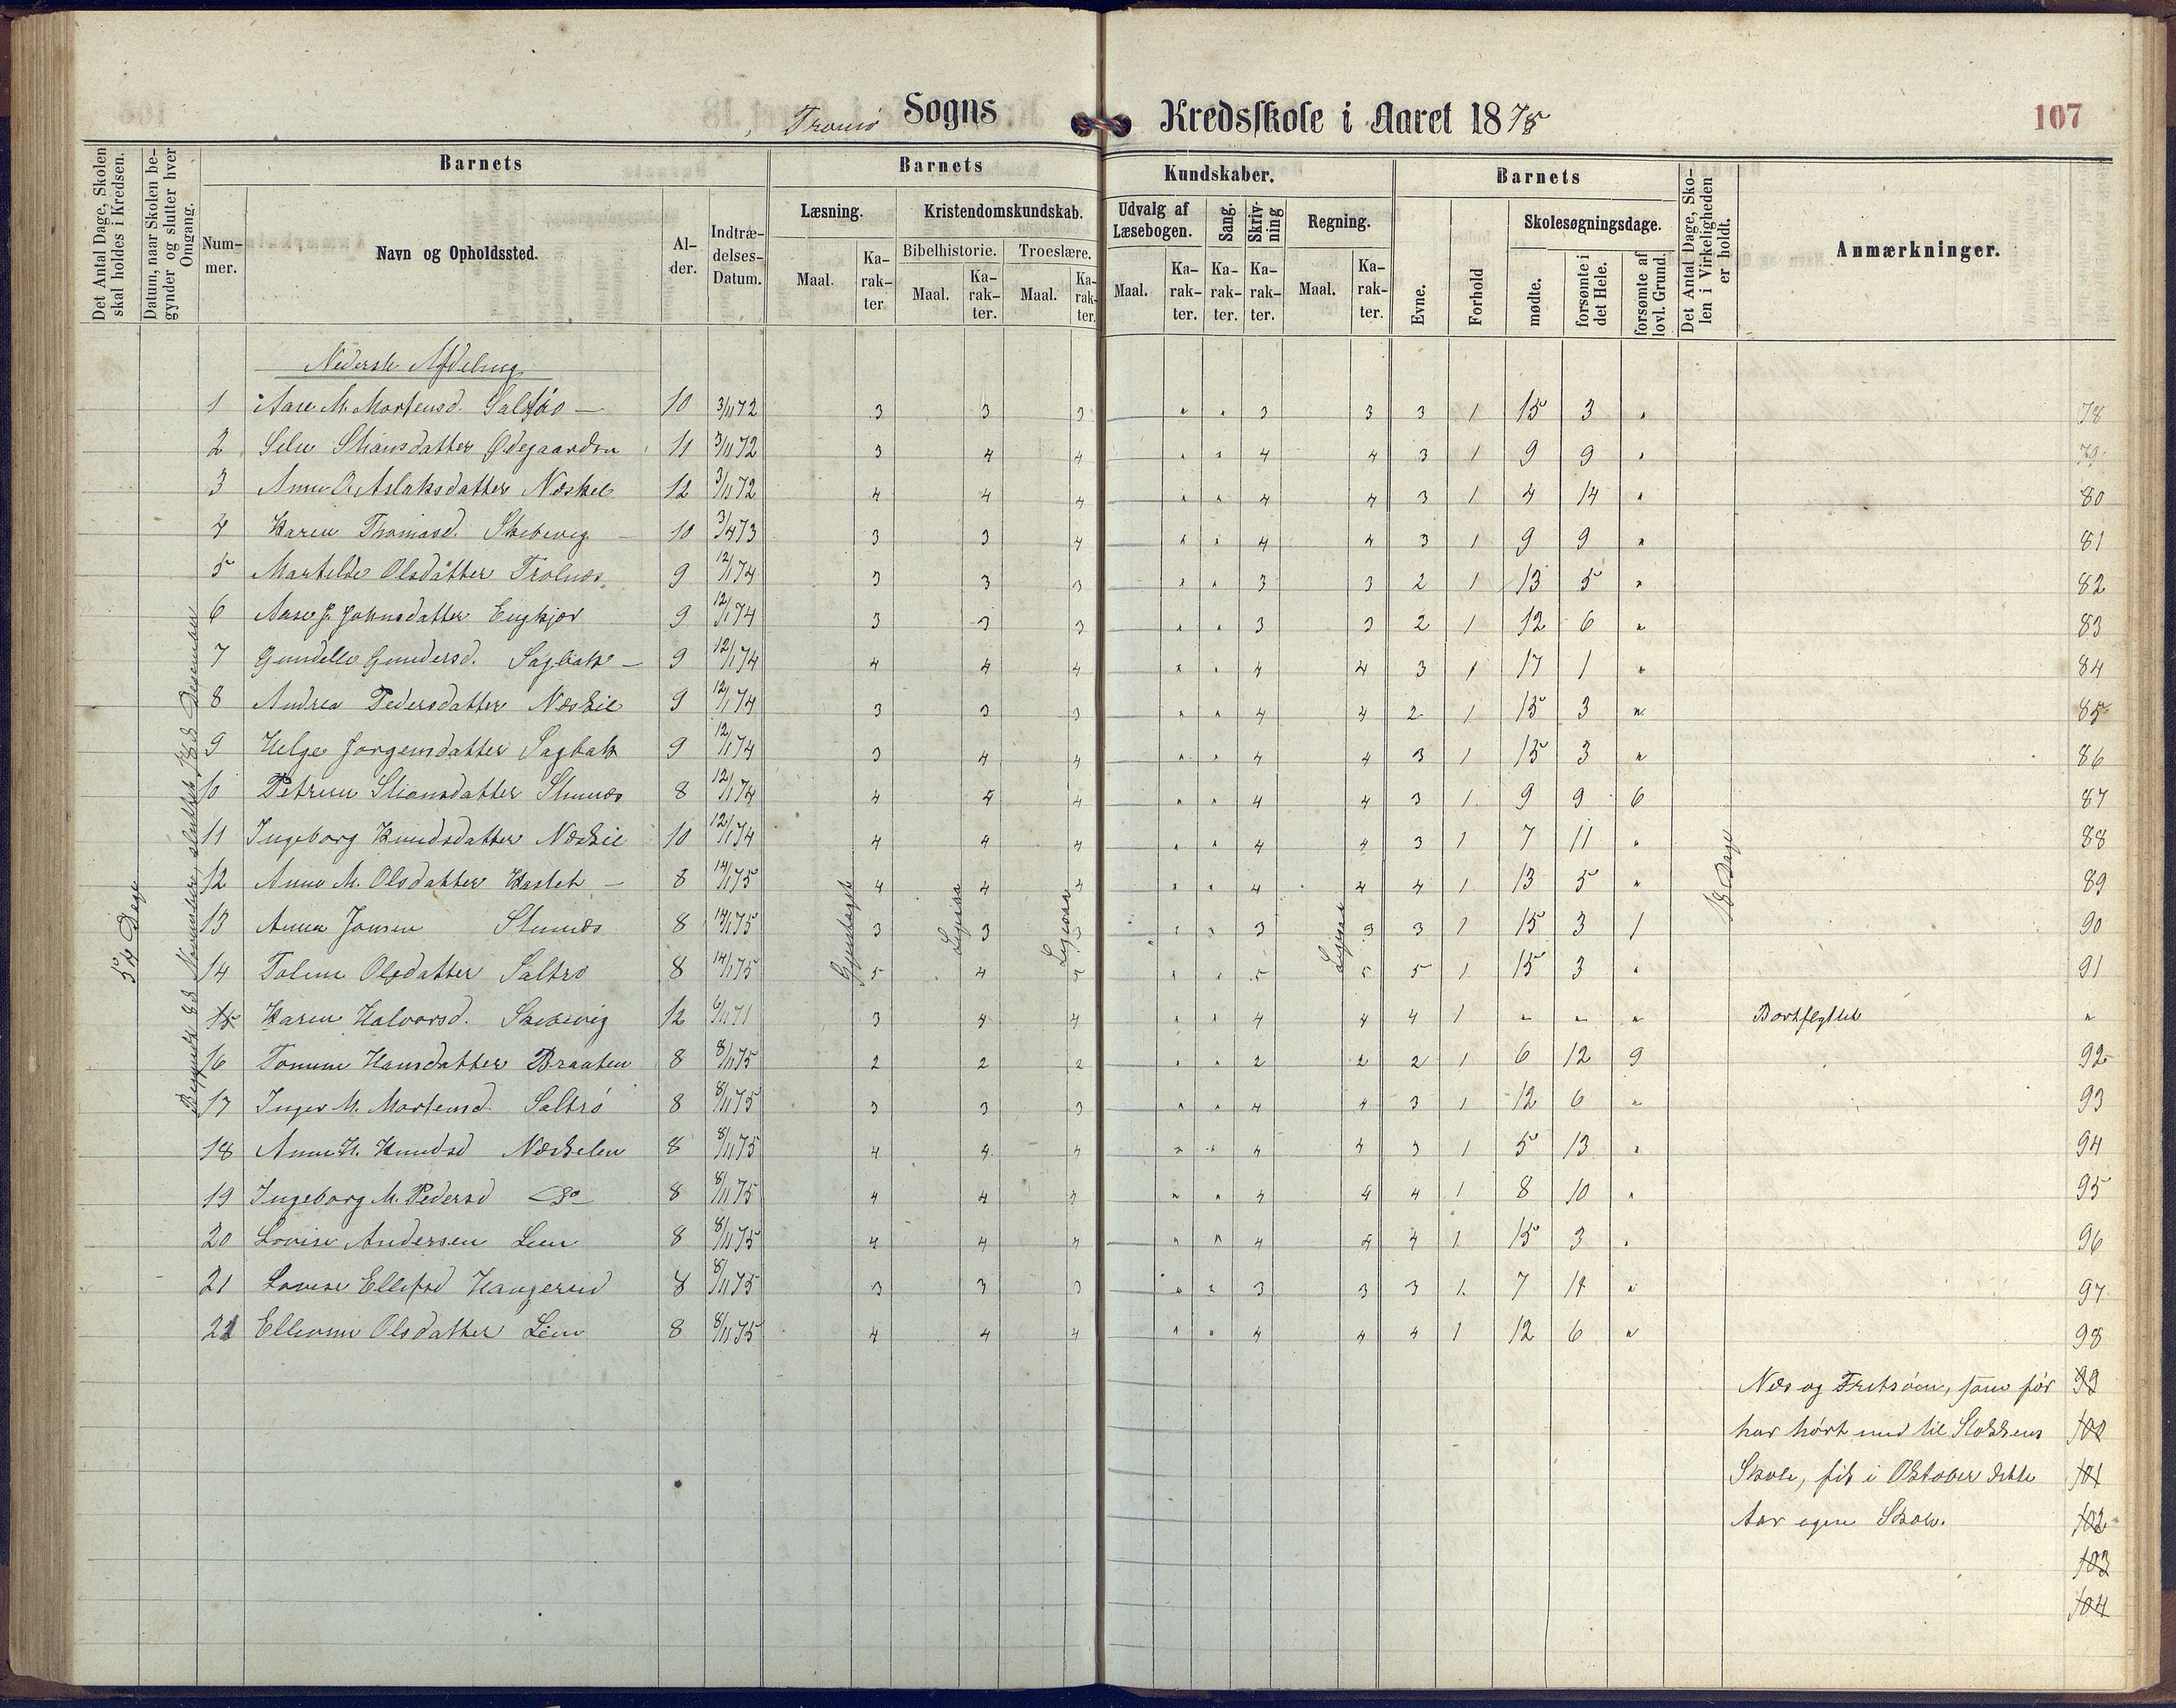 Tromø Sogns Kredsskole i Aaret 1875
107
Det Antal Dage, Skolen skal holdes i Kredsen.
Datum, naar Skolen begynder og slutter hver Omgang.
Barnets
Barnets
Kundskaber.
Barnets
Det Antal Dage, Skolen i Virkeligheden er holdt.
Anmærkninger.
Nummer.
Navn og Opholdssted.
Alder.
Indtrædelses-Datum.
Læsning.
Kristendomskundskab.
Bibelhistorie.
Troeslære.
Udvalg af Læsebogen.
Sang.
Skrivning
Regning.
Evne.
Forhold
Skolesøgningsdage.
mødte.
forsømte i det Hele.
forsømte af lovl. Grund.
Maal. Karakter Maal. Karakter. Maal. Karakter. Maal. Karakter. Karakter. Karakter. Maal. Karakter.
Nederste Afdeling
1 Aase M. Mortensd. Saltrø — 10 3/11 72 3 3 3 " " 3 3 3 1 15 3 " 78
2 Stiansdatter Ødegaarden 11 3/11 72 3 4 4 " " 4 4 3 1 9 9 " 79
3 Anne O. Aslaksdatter Neskil 12 3/11 72 4 4 4 " " 4 4 3 1 4 14 " 80
4 Karen Thomasd. Skibevig — 10 3/4 73 3 3 4 " " 4 4 3 1 9 9 " 81
5 Olsdatter Trolnæs 9 12/1 74 3 3 3 " " 3 3 2 1 13 5 " 82
6 Aase J. Johnsdatter Engkjær 9 12/1 74 3 3 3 " " 3 3 2 1 12 6 " 83
7 Gundelle Gundersd. Sagbak — 9 12/1 74 4 4 4 " " 4 4 3 1 17 1 " 84
8 Andrea Pedersdatter Neskil 9 12/1 74 3 3 3 " " 4 4 2 1 15 3 " 85
9 Helge Jorgensdatter Sagbak 9 12/1 74 3 4 4 " " 4 4 3 1 15 3 " 86
10 Petrine Stiansdatter Stunæs 8 12/1 74 4 4 4 " " 4 4 3 1 9 9 6 87
11 Ingeborg Knudsdatter Neskil 10 12/1 74 4 4 4 " " 4 4 3 1 7 11 " 88
12 Anne M. Olsdatter Hastet — 8 14/1 75 4 4 4 " " 4 4 4 1 13 5 " 89
13 Anna Jonsen Stunæs 8 14/1 75 3 3 3 " " 3 3 3 1 15 3 1 90
14 Taline Olsdatter Saltrø 8 14/1 75 5 4 5 " " 5 5 5 1 15 3 " 91
15 Karen Halvorsd. Skibevig 12 6/11 71 3 4 4 " " 4 4 4 1 " " " Bortflyttet "
16 Tomine Hansdatter Braaten 8 8/11 75 2 2 2 " " 2 2 2 1 6 12 9 92
17 Inger M. Mortensd. Saltrø 8 8/11 75 3 3 3 " " 4 4 3 1 12 6 " 93
18 Anne H. Knudsd Neskelen 8 8/11 75 4 4 4 " " 4 4 3 1 5 13 " 94
19 Ingeborg M. Pedersd do 8 8/11 75 4 4 4 " " 4 4 4 1 8 10 " 95
20 Lovise Andersen Lien 8 8/11 75 4 4 4 " " 4 4 4 1 15 3 " 96
21 Lovise Ellefsd Haugerud 8 8/11 75 3 3 3 " " 3 3 3 1 7 11 " 97
22 Ellevine Olsdatter Lien 8 8/11 75 4 4 4 " " 4 4 4 1 12 6 " 98
54 Dage
Begyndte 8d November, sluttet 18d December
Gjentaget
Ligesaa
Ligesaa
Ligesaa
18 Dage
Næs og Fretsøen, som før 99
har hørt med til Stokkens 100
Skole, fik i Oktober dette 101
Aar egen Skole. 102
103
104